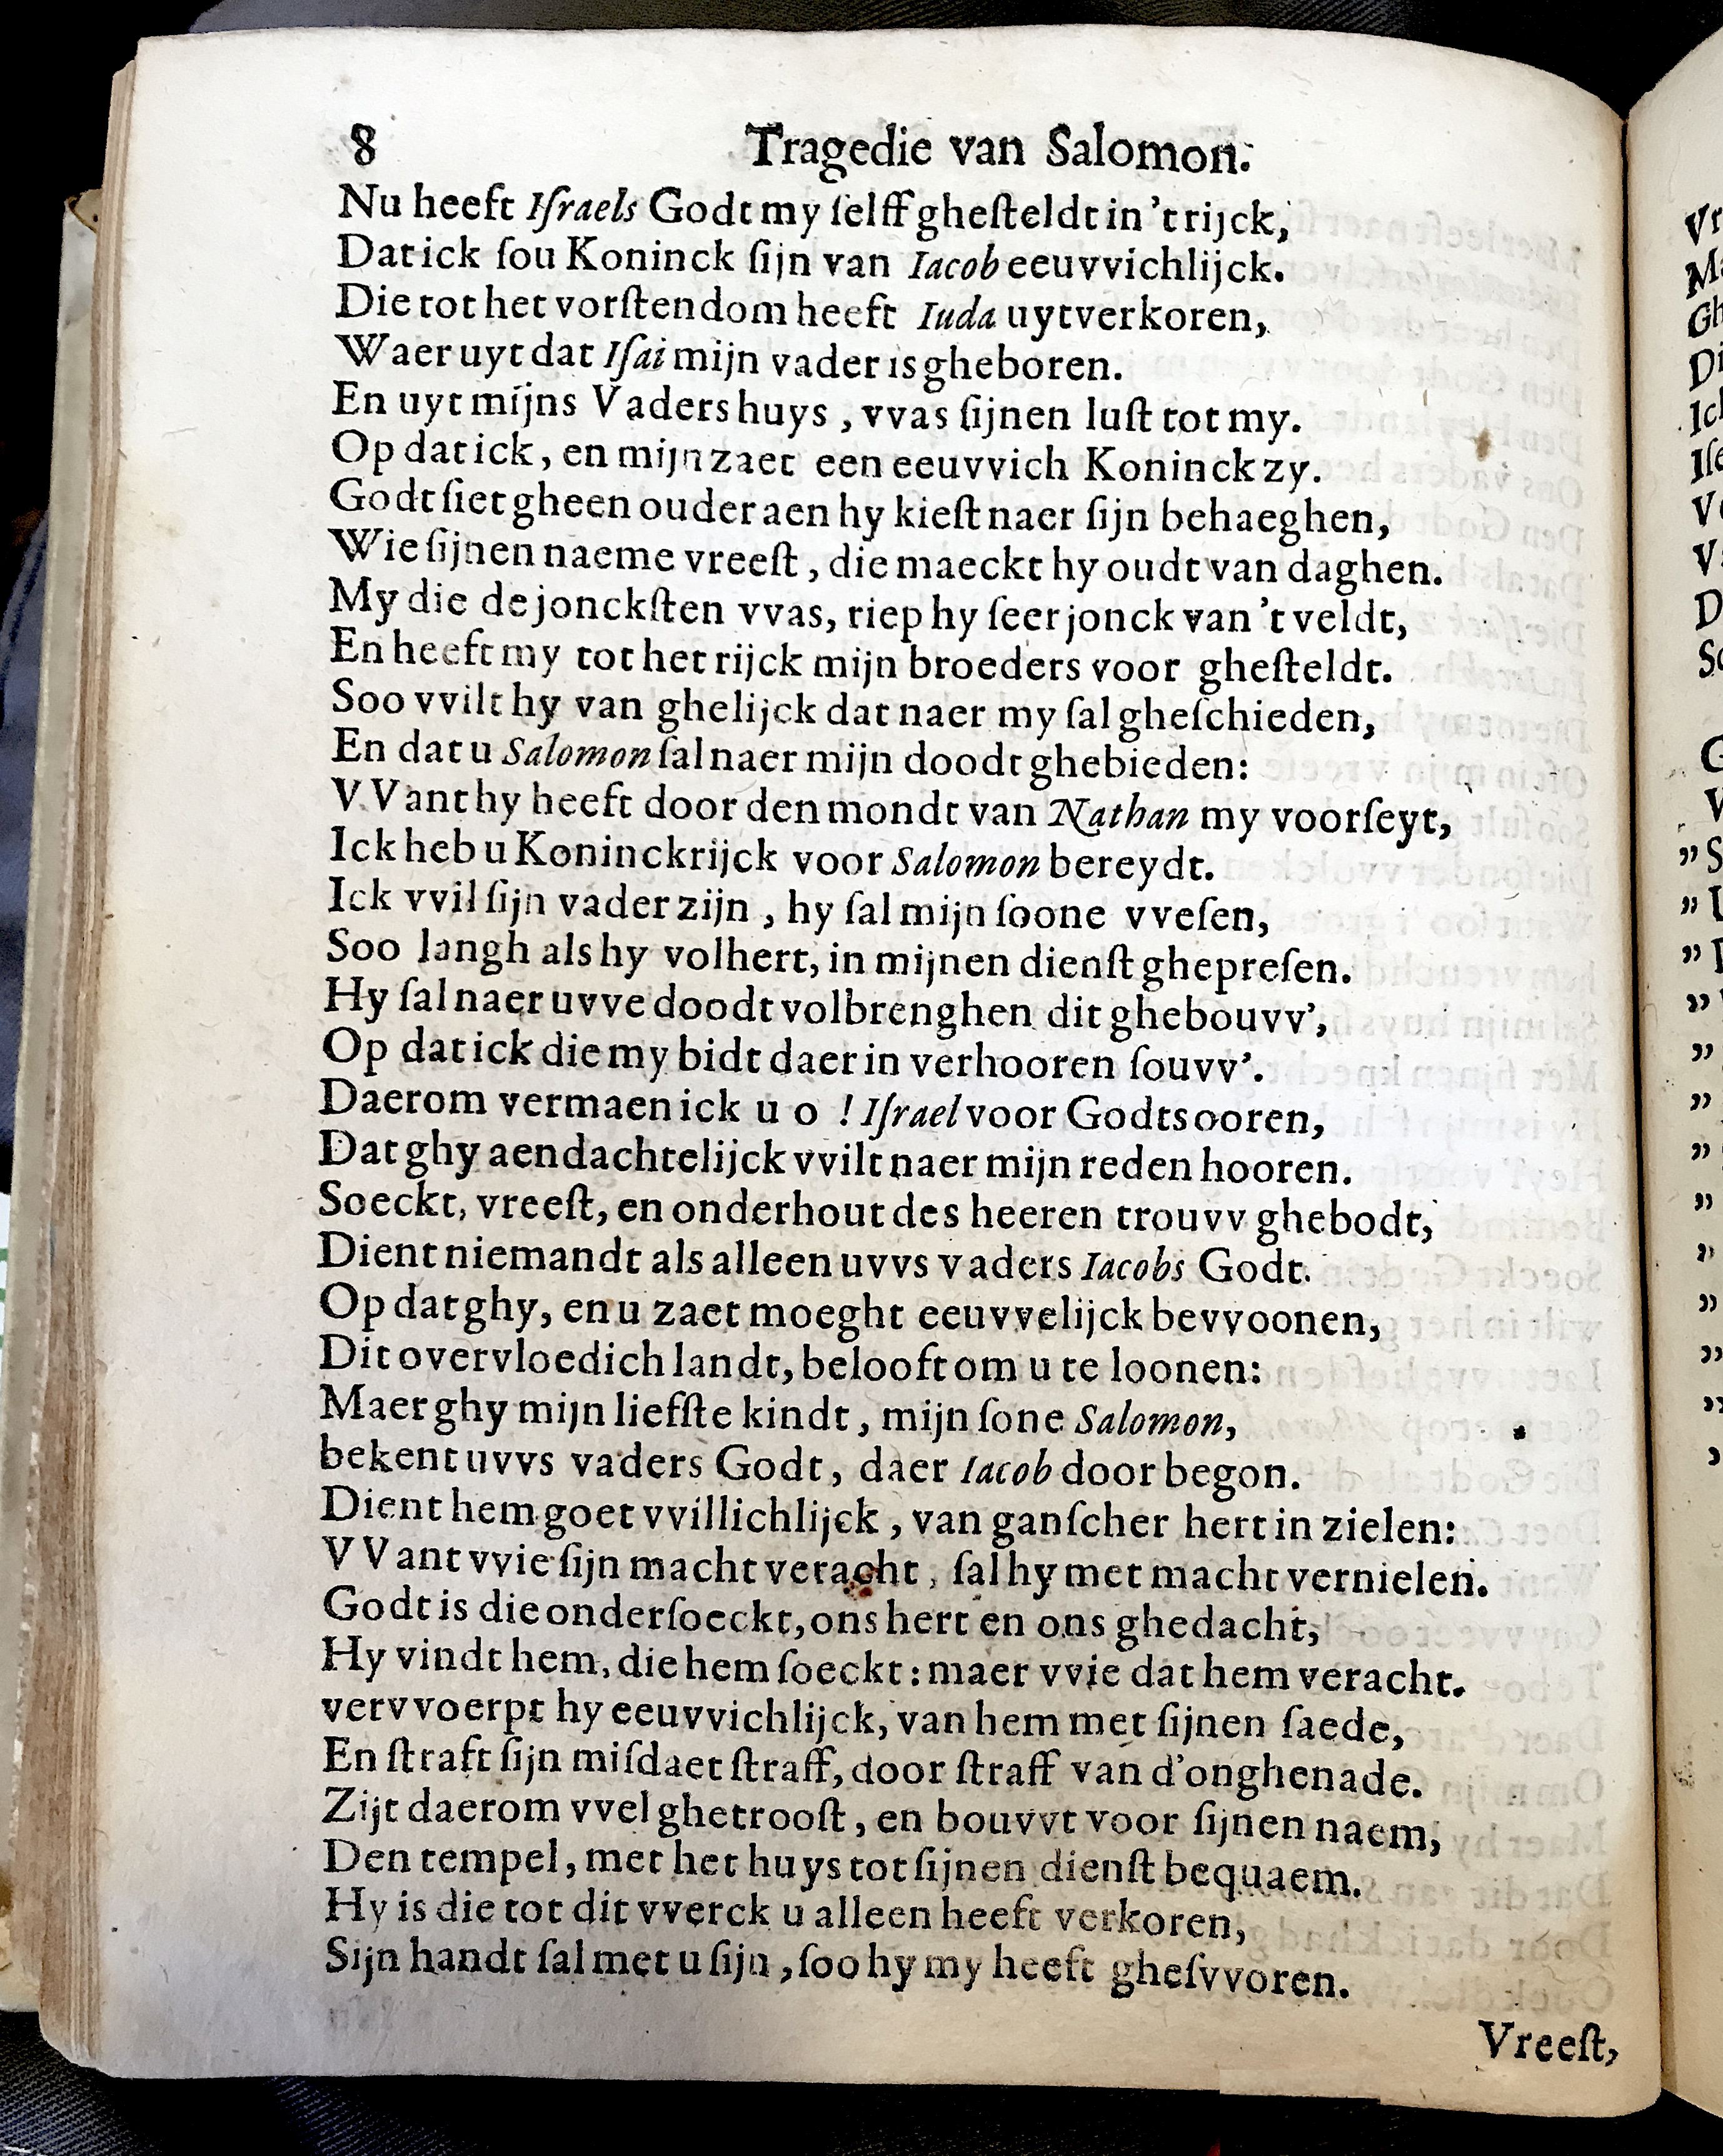 8 Tragedie van Salomon.
Nu heeft Iſraels Godt my ſelff gheſteldt in 't rijck,
Dat ick ſou Koninck ſijn van Iacob eeuvvichlijck.
Die tot het vorſtendom heeft Iuda uytverkoren,
Waer uyt dat Iſai mijn vader is gheboren.
En uyt mijns Vaders huys, vvas ſijnen luſt tot my.
Op dat ick, en mijn zaet een eeuvvich Koninck zy.
Godt ſiet gheen ouder aen hy kieſt naer ſijn behaeghen,
Wie ſijnen naeme vreeſt, die maeckt hy oudt van daghen.
My die de jonckſten vvas, riep hy ſeer jonck van 't veldt,
En heeft my tot het rijck mijn broeders voor gheſteldt.
Soo vvilt hy van ghelijck dat naer my ſal gheſchieden,
En dat u Salomon ſal naer mijn doodt ghebieden:
VVant hy heeft door den mondt van Nathan my voorſeyt,
Ick heb u Koninckrijck voor Salomon bereydt.
Ick vvil ſijn vader zijn, hy ſal mijn ſoone vveſen,
Soo langh als hy volhert, in mijnen dienſt ghepreſen.
Hy ſal naer uvve doodt volbrenghen dit ghebouvv',
Op dat ick die my bidt daer in verhooren ſouvv'.
Daerom vermaen ick u o ! Iſrael voor Godts ooren,
Dat ghy aendachtelijck vvilt naer mijn reden hooren.
Soeckt, vreeſt, en onderhout des heeren trouvv ghebodt,
Dient niemandt als alleen uvvs vaders Iacobs Godt.
Op dat ghy, en u zaet moeght eeuvvelijck bevvoonen,
Dit overvloedich landt, belooft om u te loonen:
Maer ghy mijn liefſte kindt, mijn ſone Salomon,
bekent uvvs vaders Godt, daer Iacob door begon.
Dient hem goet vvillichlijck, van ganſcher hert in zielen:
VVant vvie ſijn macht veracht, ſal hy met macht vernielen.
Godt is die onderſoeckt, ons hert en ons ghedacht,
Hy vindt hem, die hem ſoeckt: maer vvie dat hem veracht.
vervvoerpt hy eeuvvichlijck, van hem met ſijnen ſaede,
En ſtraft ſijn miſdaet ſtraff, door ſtraff van d'onghenade.
Zijt daerom vvel ghetrooſt, en bouvvt voor ſijnen naem,
Den tempel, met het huys tot ſijnen dienſt bequaem.
Hy is die tot dit vverck u alleen heeft verkoren,
Sijn handt ſal met u ſijn, ſoo hy my heeft gheſvvoren.
Vreeſt,